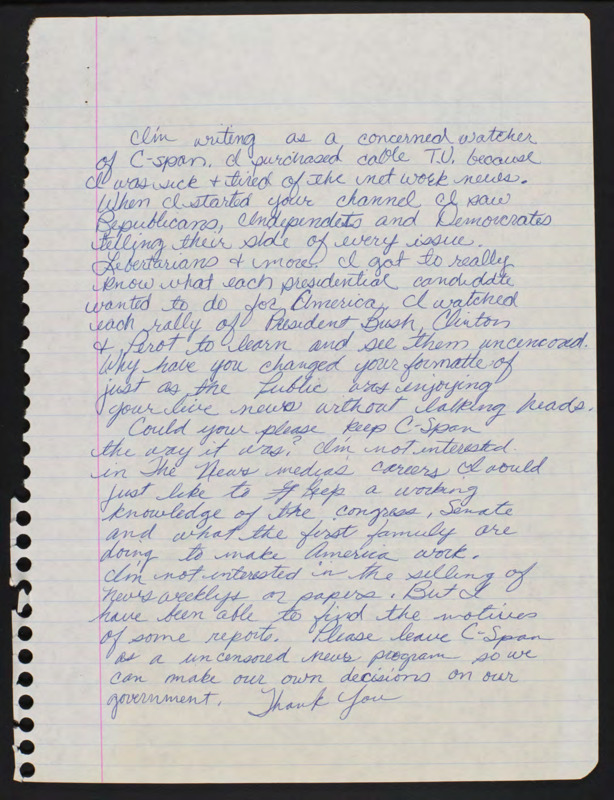 I'm writing as a concerned watcher
of C-span. I purchased cable T.V. because
I was sick + tired of the net work news.
When I started your channel I saw
Republicans, Independets and Democrates
telling their side of every issue.
Libertarians & more. I got to really
know what each presidential candidate
wanted to do for America. I watched
each rally of President Bush, Clinton
& Perot to learn and see them
Why have you changed your formatte of
just as the Public was enjoying
your live news without talking heads.
Could you please keep C-Span
the way it was? I'm not interested
in The News media's careers I would
just like to keep a working
knowledge of the congress, Senate
and what the first family are
doing to make America work.
I'm not interested in the selling of
News weeklys or papers. But I
have been able to find the motives
of some reports. Please leave C-Span
as a uncensored news program so we
can make our own decisions on our
government. Thank You